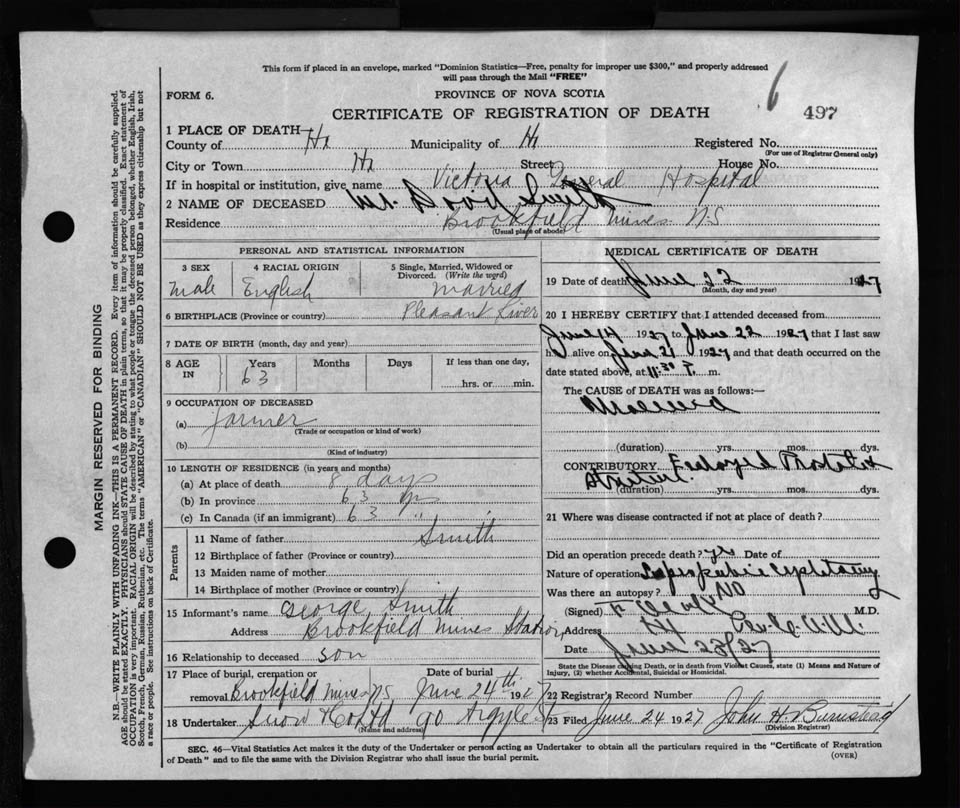 This form if placed in an envelope, marked "Dominion Statistics—Free, penalty for improper use $300," and properly addressed
will pass through the Mail "FREE"
FORM 6.
PROVINCE OF NOVA SCOTIA
6
497
CERTIFICATE OF REGISTRATION OF DEATH
1 PLACE OF DEATH—
County of Hx Municipality of Hx Registered No.
(For use of Registrar General only)
City or Town Hx Street House No.
If in hospital or institution, give name Victoria General Hospital
2 NAME OF DECEASED Smith
Residence Brookfield Mines N.S
(Usual place of abode)
PERSONAL AND STATISTICAL INFORMATION
3 SEX 4 RACIAL ORIGIN 5 Single, Married, Widowed or Divorced. (Write the word)
Male English Married
6 BIRTHPLACE (Province or country) Pleasant River
7 DATE OF BIRTH (month, day and year)
8 AGE IN Years Months Days If less than one day,
63 hrs. or min.
9 OCCUPATION OF DECEASED
(a) Farmer
(Trade or occupation or kind of work)
(b)
(Kind of industry)
10 LENGTH OF RESIDENCE (in years and months)
(a) At place of death 8 days
(b) In province 63 yrs
(c) In Canada (if an immigrant) 63 "
Parents
11 Name of father Smith
12 Birthplace of father (Province or country)
13 Maiden name of mother
14 Birthplace of mother (Province or country)
15 Informant's name George Smith
Address Brookfield Mines Station
16 Relationship to deceased son
17 Place of burial, cremation or Date of burial
removal Brookfield Mines N.S June 24th 1927
18 Undertaker Snow & Co Ltd 90 Argyle St
(Name and address)
MEDICAL CERTIFICATE OF DEATH
19 Date of death June 22 1927
(Month, day and year)
20 I HEREBY CERTIFY that I attended deceased from
June 14 1927 to June 22 1927 that I last saw
h alive on June 21 1927 and that death occurred on
date stated above, at 11:30 m.
The CAUSE OF DEATH was as follows:—
(duration) yrs. mos. dys.
CONTRIBUTORY Enlarged Prostate
Stricture
(duration) yrs. mos. dys.
21 Where was disease contracted if not at place of death?
Did an operation precede death? yes Date of
Nature of operation Suprapubic
Was there an autopsy? No
(Signed) M.D.
Address
Date June 23/27
State the Disease causing Death, or in death from Violent Causes, state (1) Means and Nature of
Injury, (2) whether Accidental, Suicidal or Homicidal.
22 Registrar's Record Number
23 Filed June 24 1927 John H.
(Division Registrar)
SEC. 46—Vital Statistics Act makes it the duty of the Undertaker or person acting as Undertaker to obtain all the particulars required in the "Certificate of Registration
of Death" and to file the same with the Division Registrar who shall issue the burial permit.
(OVER)
MARGIN RESERVED FOR BINDING
N.B.—WRITE PLAINLY WITH UNFADING INK—THIS IS A PERMANENT RECORD. Every item of information should be carefully supplied.
AGE should be stated EXACTLY. PHYSICIANS should STATE CAUSE OF DEATH in plain terms, so that it may be properly classified. Exact statement of
OCCUPATION is very important. RACIAL ORIGIN will be described by stating to what people or tongue the deceased person belonged, whether English, Irish,
Scotch, French, German, Russian, Ruthenian, etc. The terms "AMERICAN" or "CANADIAN" SHOULD NOT BE USED as they express citizenship but not
a race or people. See instructions on back of Certificate.